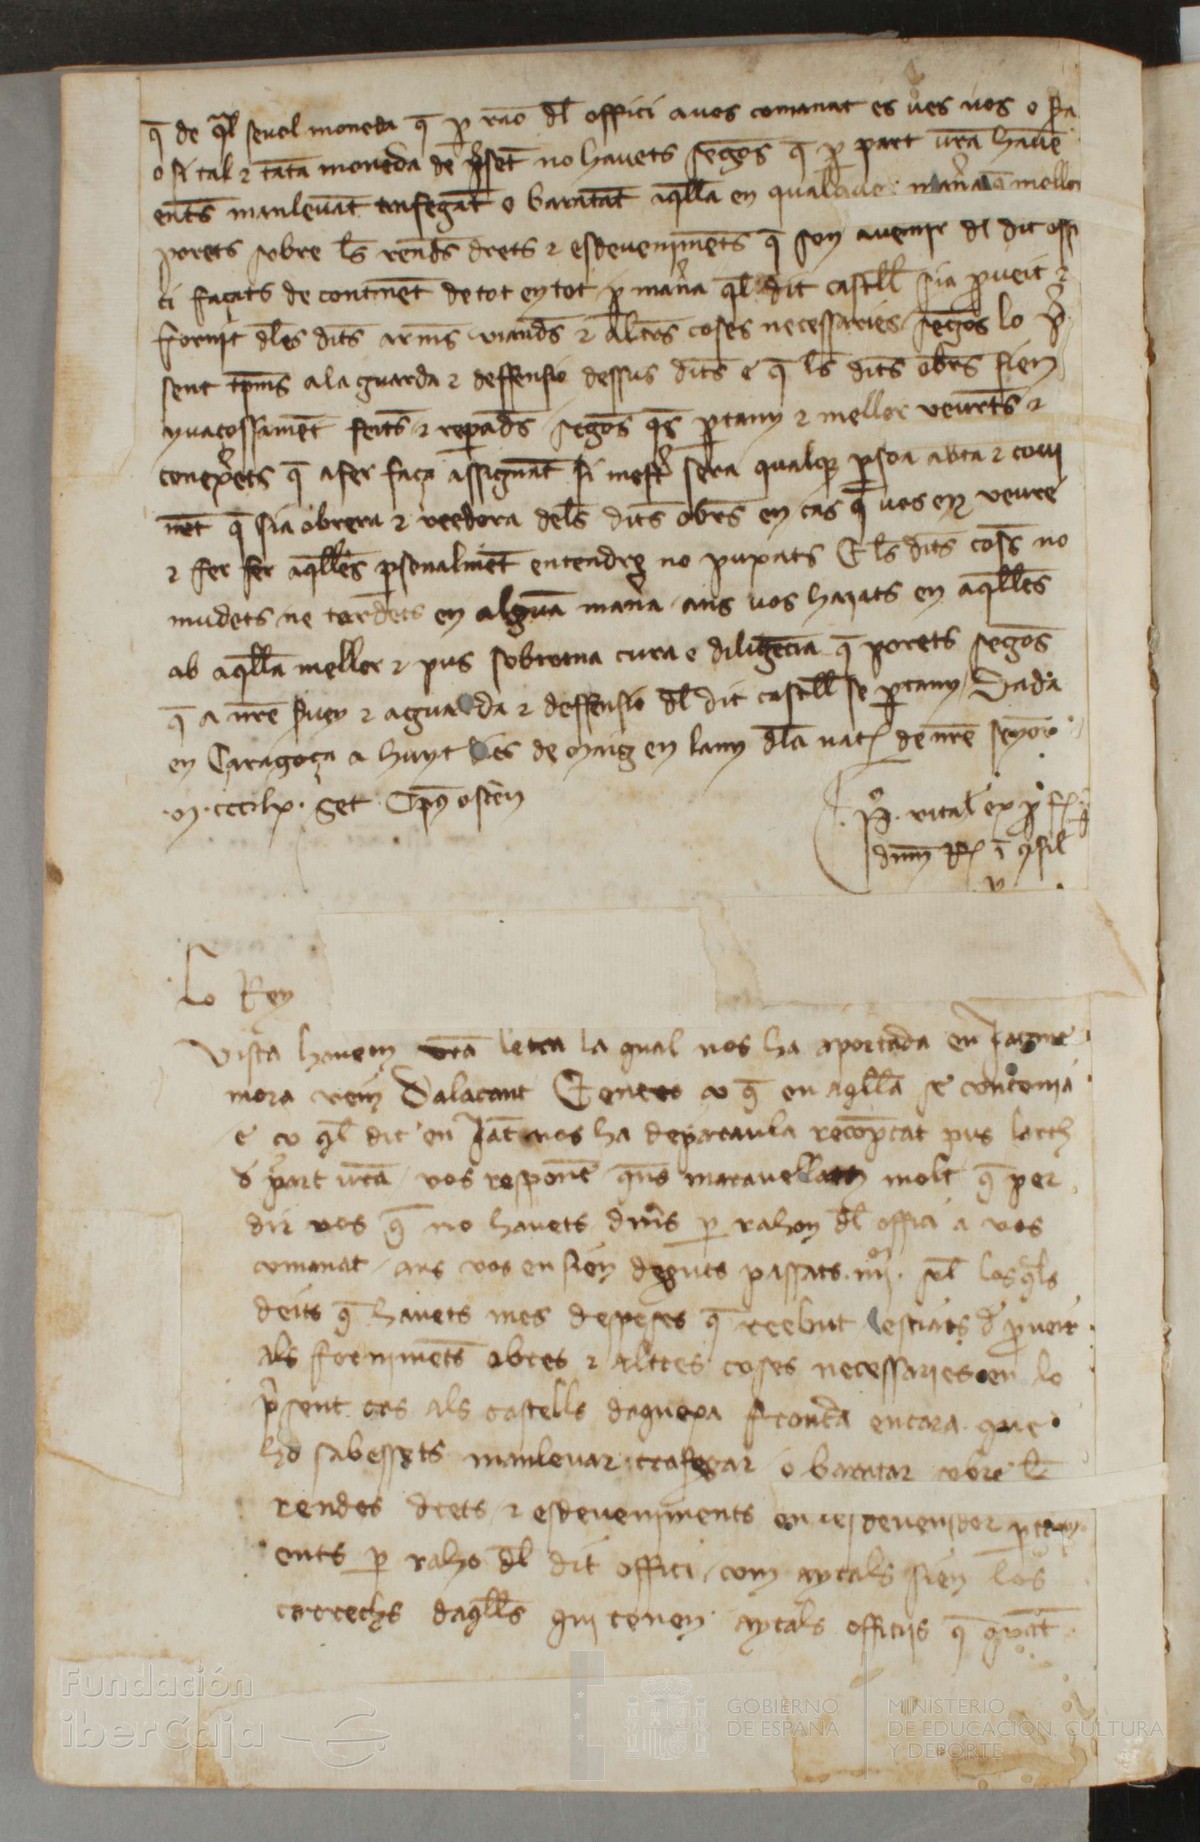 q̄ de q̄l sevol moneda q̄ p raō dl̄ offici avos comanat es ves vos o sia
o si tal ⁊ tāta moneda de p̄sēt no havets segōs q̄ p part vrā havē
ents manlevāt trafegāt o baratāt aq̄lla en qualque man̄a q̄ mellor
porets sobre ls̄ rends̄ drets ⁊ esdevenimēts q̄ son avenir dl̄ dit offi
ci façats de continēt de tot en tot p man̄a q̄l dit castell sia pveit ⁊
fornit dl̄s dits arms̄ viands̄ ⁊ altrs̄ coses necessaries segōs lo p̄
sent tp̄ms a la guarda ⁊ deffensio dessus dits e q̄ ls̄ dits obrs̄ sien
yvaçossamēt feits ⁊ repads̄ segōs q̄s ptany ⁊ mellor veurets ⁊
conexets q̄ afer faça assignāt si mest̄ sera qualq̄ psoa abta ⁊ covi
nēt q̄ sia obrera ⁊ veedora dels̄ dits obrs̄ en cas q̄ vos en veure
⁊ fer fer aq̄lles psonalmēt entendre no puxats E ls̄ dits coss̄ no
mudets ne tardets en alguā man̄a ans vos haiats en aq̄lles
ab aq̄lla mellor ⁊ pus sobirana cura e diligēcia q̄ porets segōs
q̄ a nr̄e svey ⁊ a guarda ⁊ deffensio dl̄ dit castell se ptany Dada
en Çaragoça a huyt dies de maig en lany dl̄a nat de nr̄e senyor
.M.CCCLX. Set
P. vital ex p
dnm̄ R ī ɔsil
Lo Rey
Vista havem vrā letra la qual nos ha aportada en Jacme
mora vehi Dalacant E entes ço q̄ en aq̄lla se contenia
e ço q̄l dit en Jac̄ nos ha deparaula recōptat pus larch
d part vrā vos responē q̄ns maravellam molt q̄ per
dir vos q̄ no havets dnr̄s p rahon dl̄ offici a vos
comanat ans vos en sien deguts passats .IIII. sl̄ los q̄ls
deits q̄ havets mes despeses q̄ reebut lestiats d pveir
als fornimēts obres ⁊ altres coses necessaries en lo
p̄sent cas als castells daquexa fronta encara que
ho sabessets manlevar trafegar o baratar sobre ls̄
rendes drets ⁊ esdeveniments en esdevenidor ptany
ents p raho dl̄ dit offici com aytals sien los
carrechs daq̄lls qui tenen aytals officiis q̄
Fundación
iberCaja
GOBIERNO
DE ESPAÑA
MINISTERIO
DE EDUCACIÓN, CULTURA
Y DEPORTE